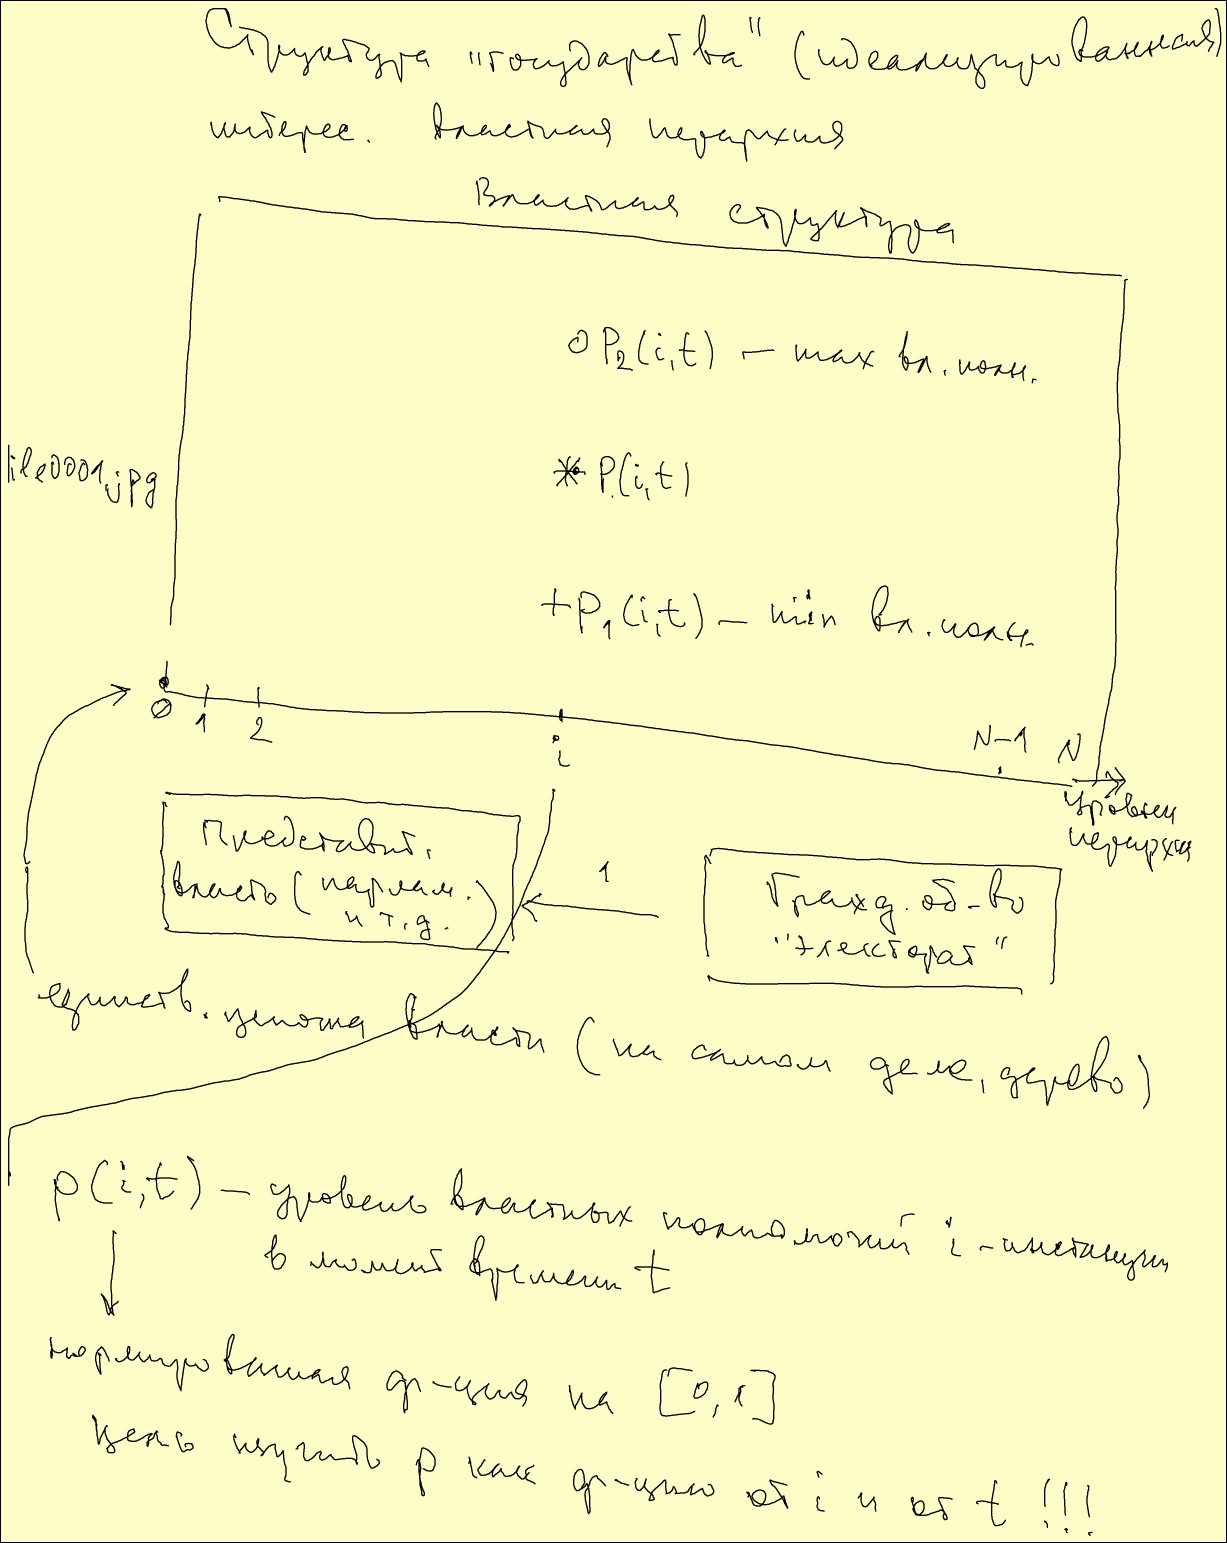 Структура "государства" (идеализированная)
интерес. Властная иерархия
Властная структура
P₂(i,t) – max вл. полн.
file0001.jpg
P(i,t)
P₁(i,t) – min вл. полн.
0 1 2 i N-1 N
уровни
иерархии
Представит.
власть (парлам.
и т.д.)
1
Гражд. об-во
"электорат"
единств. цепочка власти (на самом деле, дерево)
p(i,t) – уровень властных полномочий i-инстанции
в момент времени t
нормированная ф-ция на [0,1]
Цель изучить p как ф-цию от i и от t !!!